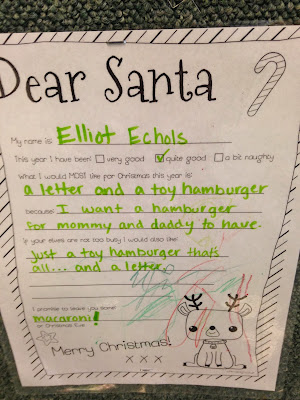 Dear Santa
My name is: Elliot Echols
This year I have been: very good quite good a bit naughty
What I would MOST like for Christmas this year is:
a letter and a toy hamburger
because: I want a hamburger
for mommy and daddy to have.
If your elves are not too busy I would also like:
Just a toy hamburger thats
all... and a letter.
I promise to leave you some:
macaroni!
on Christmas Eve.
Merry Christmas!
X X X